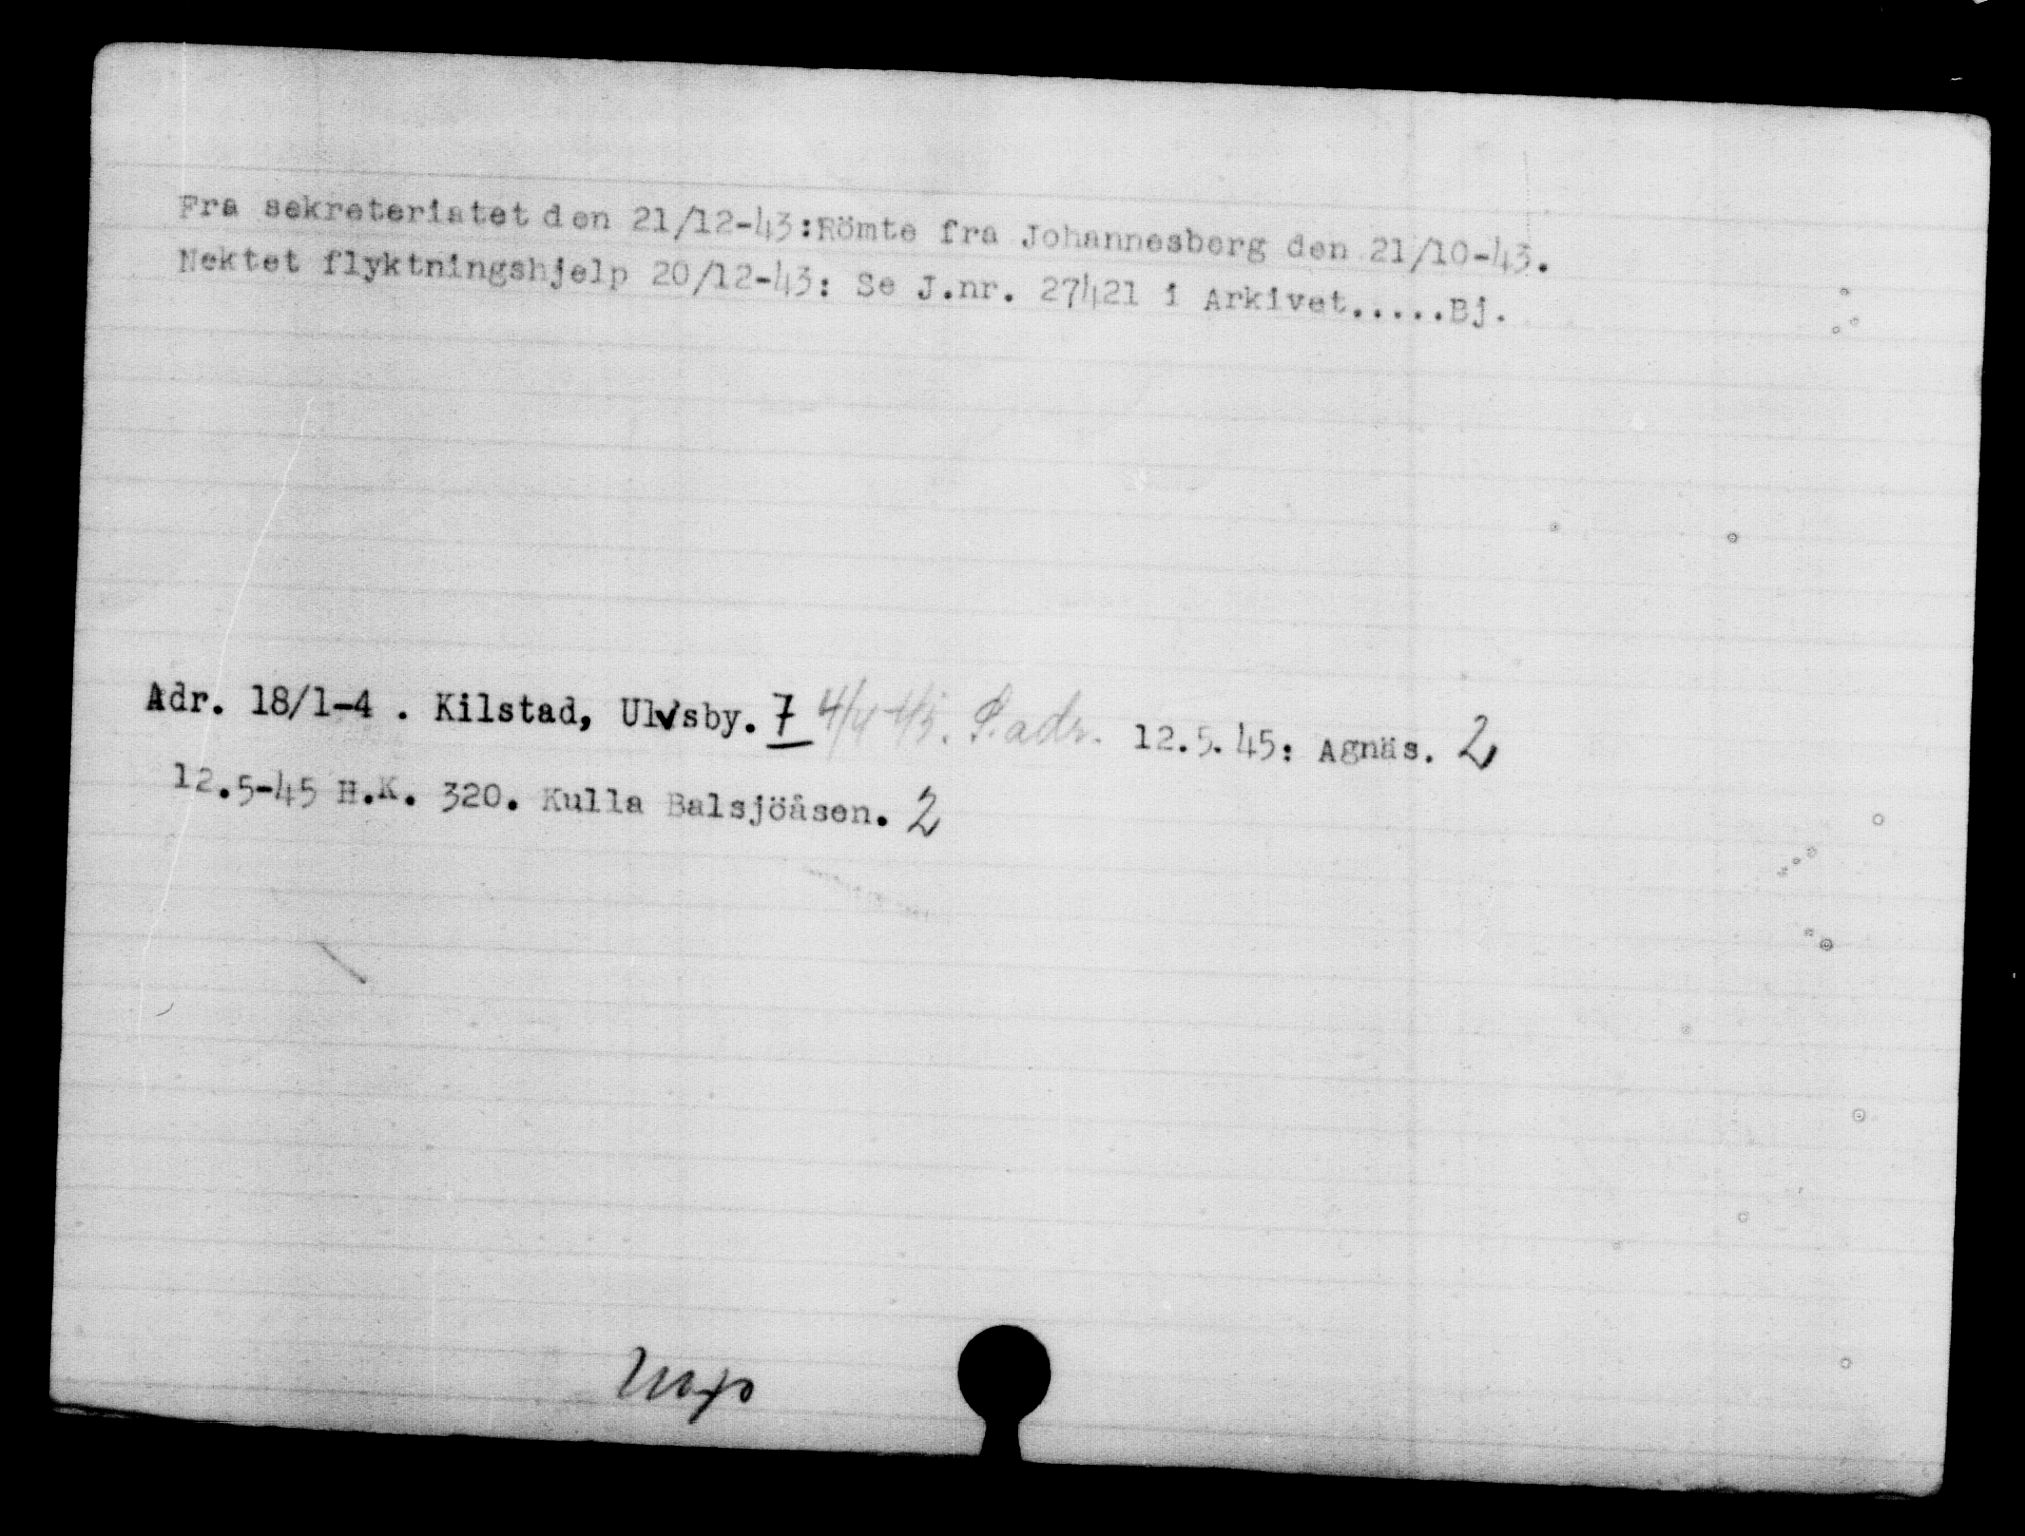 Fra sekreteriatet den 21/12-43:Römte fra Johannesberg den 21/10-43.
Nektet flyktningshjelp 20/12-43: Se J.nr. 27421 i Arkivet.....Bj.
Adr. 18/1-4 . Kilstad, Ulvsby. 7 4/4 43. S. adr. 12.5.45: Agnäs. 2
12.5-45 H.K. 320. Kulla Balsjöåsen. 2